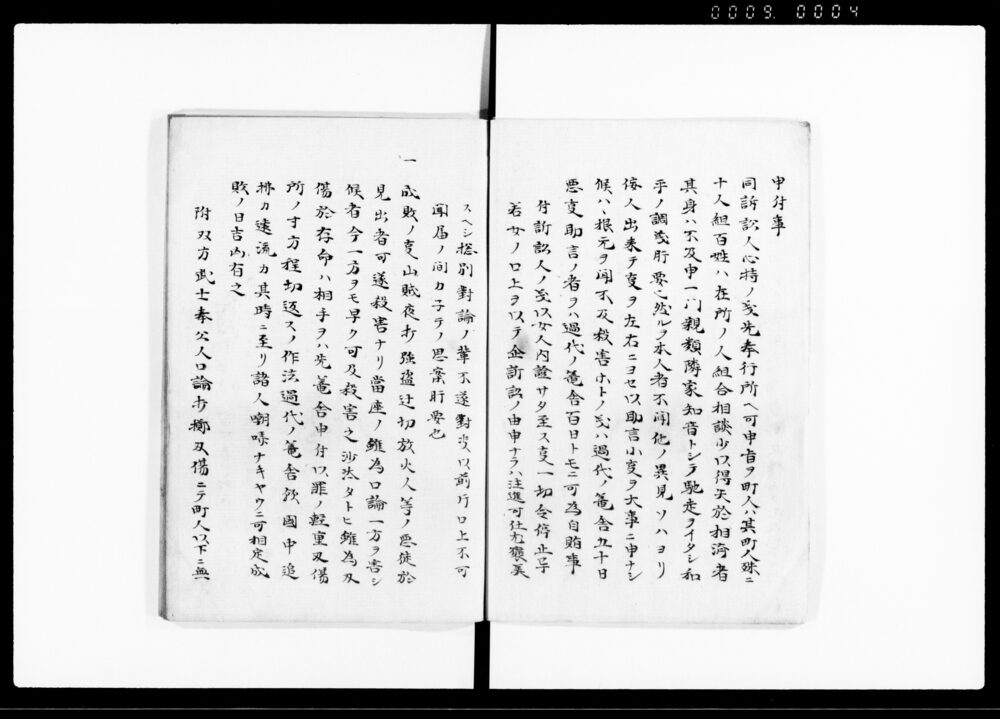 0009 0004
申付事
同訴訟人心持ノ事先奉行所ヘ可申旨ヲ町人ハ其町人殊ニ
十人組百姓ハ在所ノ人組合相談少以得失於相済者
其身ハ不及申一門親類隣家知音トシテ馳走ヲイタシ和
平ノ調義肝要也然ルヲ本人者不聞他ノ異見ソハヨリ
侫人出来テ事ヲ左右ニヨセ以助言小事ヲ大事ニ申ナシ
候ハヽ根元ヲ聞不及殺害ホトノ義ハ過代ノ篭舎五十日
悪事助言ノ者ヲハ過代ノ篭舎百日トモニ可為自賄事
付訴訟人ノ義以女人内證サタ至ス事一切令停止畢
若女ノ口上ヲ以テ企訴訟ノ由申ナラハ注進可仕尤褒美
スヘシ捴別對論ノ輩不遂對决以前片口上不可
聞届ノ間カ子テノ思案肝要也
一 成敗ノ事山賊夜打強盗辻切放火人等ノ悪徒於
見出者可遂殺害ナリ當座ノ雖為口論一方ヲ害シ
候者今一方ヲモ早ク可及殺害之沙汰タトヒ雖為刄
傷於存命ハ相手ヲハ先篭舎申付以罪ノ軽重刄傷
所ノ寸方程切返スノ作法過代ノ篭舎歟國中追
拂カ遠流カ其時ニ至リ諸人嘲哢ナキヤウニ可相定成
敗ノ日吉凶有之
附双方武士奉公人口論打擲刄傷ニテ町人以下ニ無